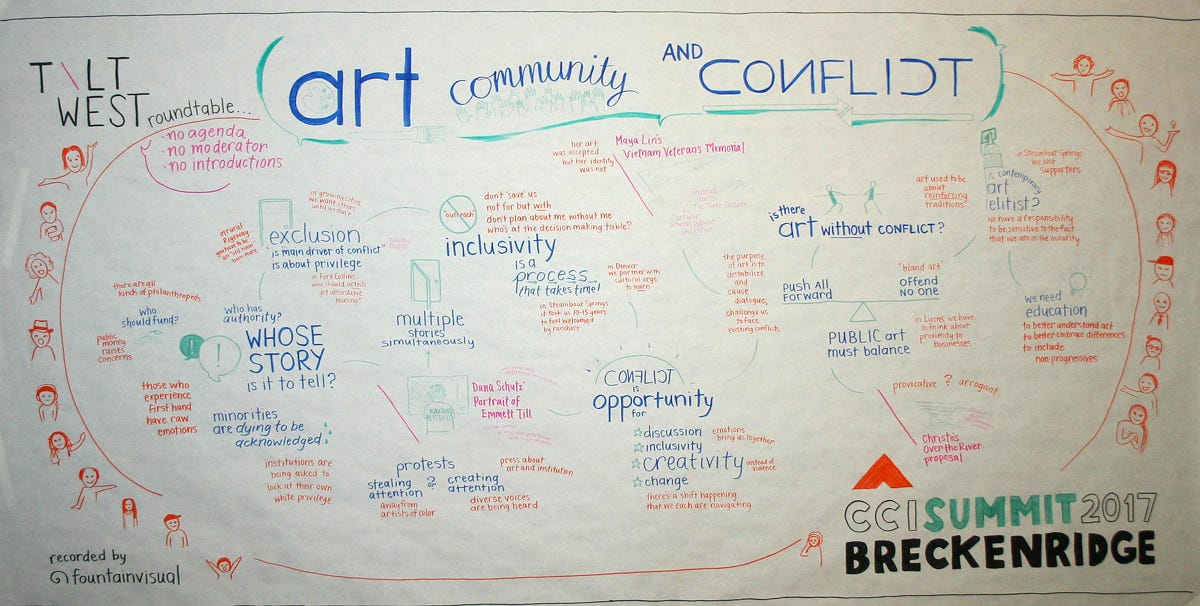 TILT
WEST
roundtable...
·no agenda
·no moderator
·no introductions
art community AND CONFLICT
her art
was accepted
but her identity
was not
Maya Lin's
Vietnam Veterans Memorial
in growing cities
we want others
until we don't
exclusion
"is main driver of conflict"
is about privilege
in rural
Ridgway
you have to be
an "old timer"
born there
in Fort Collins
who should artists
get affordable
housing?
"outreach"
don't 'save' us
not for but with
don't plan about me without me
who's at the decision making table?
inclusivity
is a
process
that takes time!
in Denver
we partner with
cultural orgs
to learn
in Steamboat Springs
it took us 10-15 years
to feel welcomed
by ranchers
is there
art without CONFLICT?
art used to be
about
reinforcing
traditions
in Steamboat Springs
we lost
supporters
is contemporary
art
elitist?
we have a responsibility
to be sensitive to the fact
that we are in the minority
the purpose
of art is to
destabilize
and
cause
dialogue,
challenge us
to face
existing conflicts
push All
Forward
"bland art"
offend
no one
PUBLIC art
must balance
in Lyons, we have
to think about
proximity to
businesses
we need
education
to better understand art
to better embrace differences
to include
non progressives
provocative ? arrogant
Christo's
Over the River
proposal
there are all
kinds of philanthropists
who
should fund?
public
money
raises
concerns
who has
authority?
WHOSE
STORY
is it to tell?
multiple
stories
simultaneously
those who
experience
first hand
have raw
emotions
minorities
are dying to be
acknowledged
institutions are
being asked to
look at their own
white privilege
Dana Schutz'
Portrait of
Emmett Till
protests
stealing
attention
?
creating
attention
away from
artists of color
press about
art and institution
diverse voices
are being heard
CONFLICT
is
opportunity
for
discussion
emotions
bring us together
inclusivity
creativity
instead of
violence
change
there's a shift happening
that we each are navigating
recorded by
fountainvisual
CCI SUMMIT 2017
BRECKENRIDGE